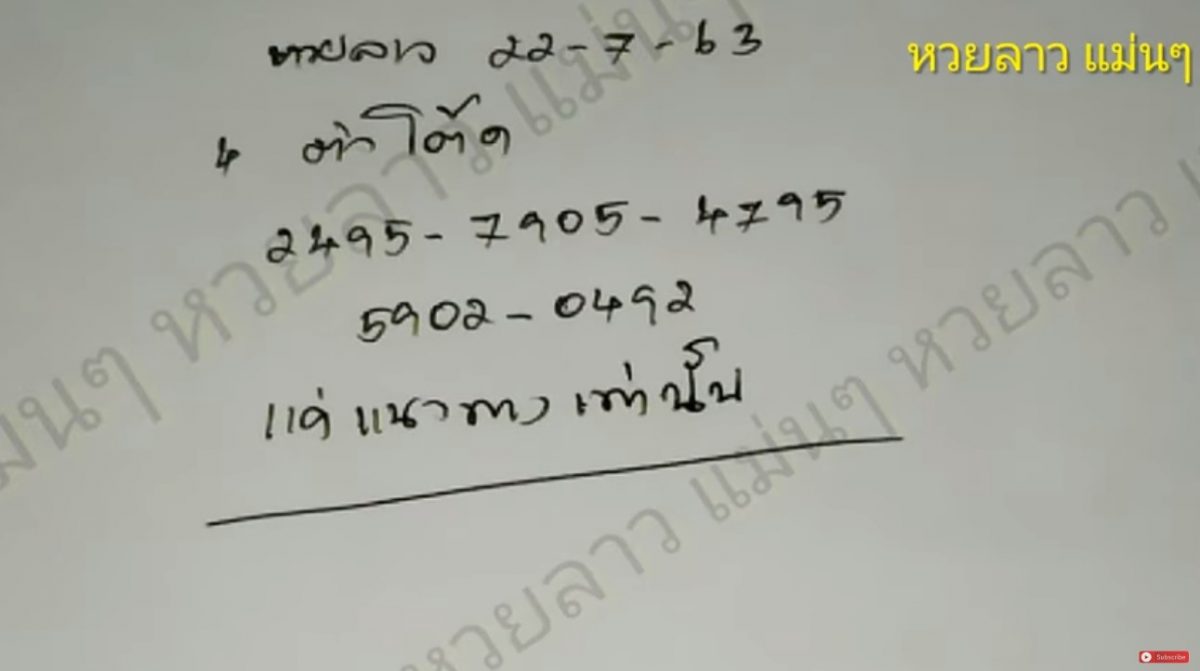 หวยลาว 22-7-63
หวยลาว แม่นๆ
4 ตัวโต๊ด
2495 - 7905 - 4795
5902 - 0492
แค่แนวทางเท่านั้น
หวยลาว แม่นๆ
หวยลาว แม่นๆ
หวยลาว แม่นๆ
Subscribe